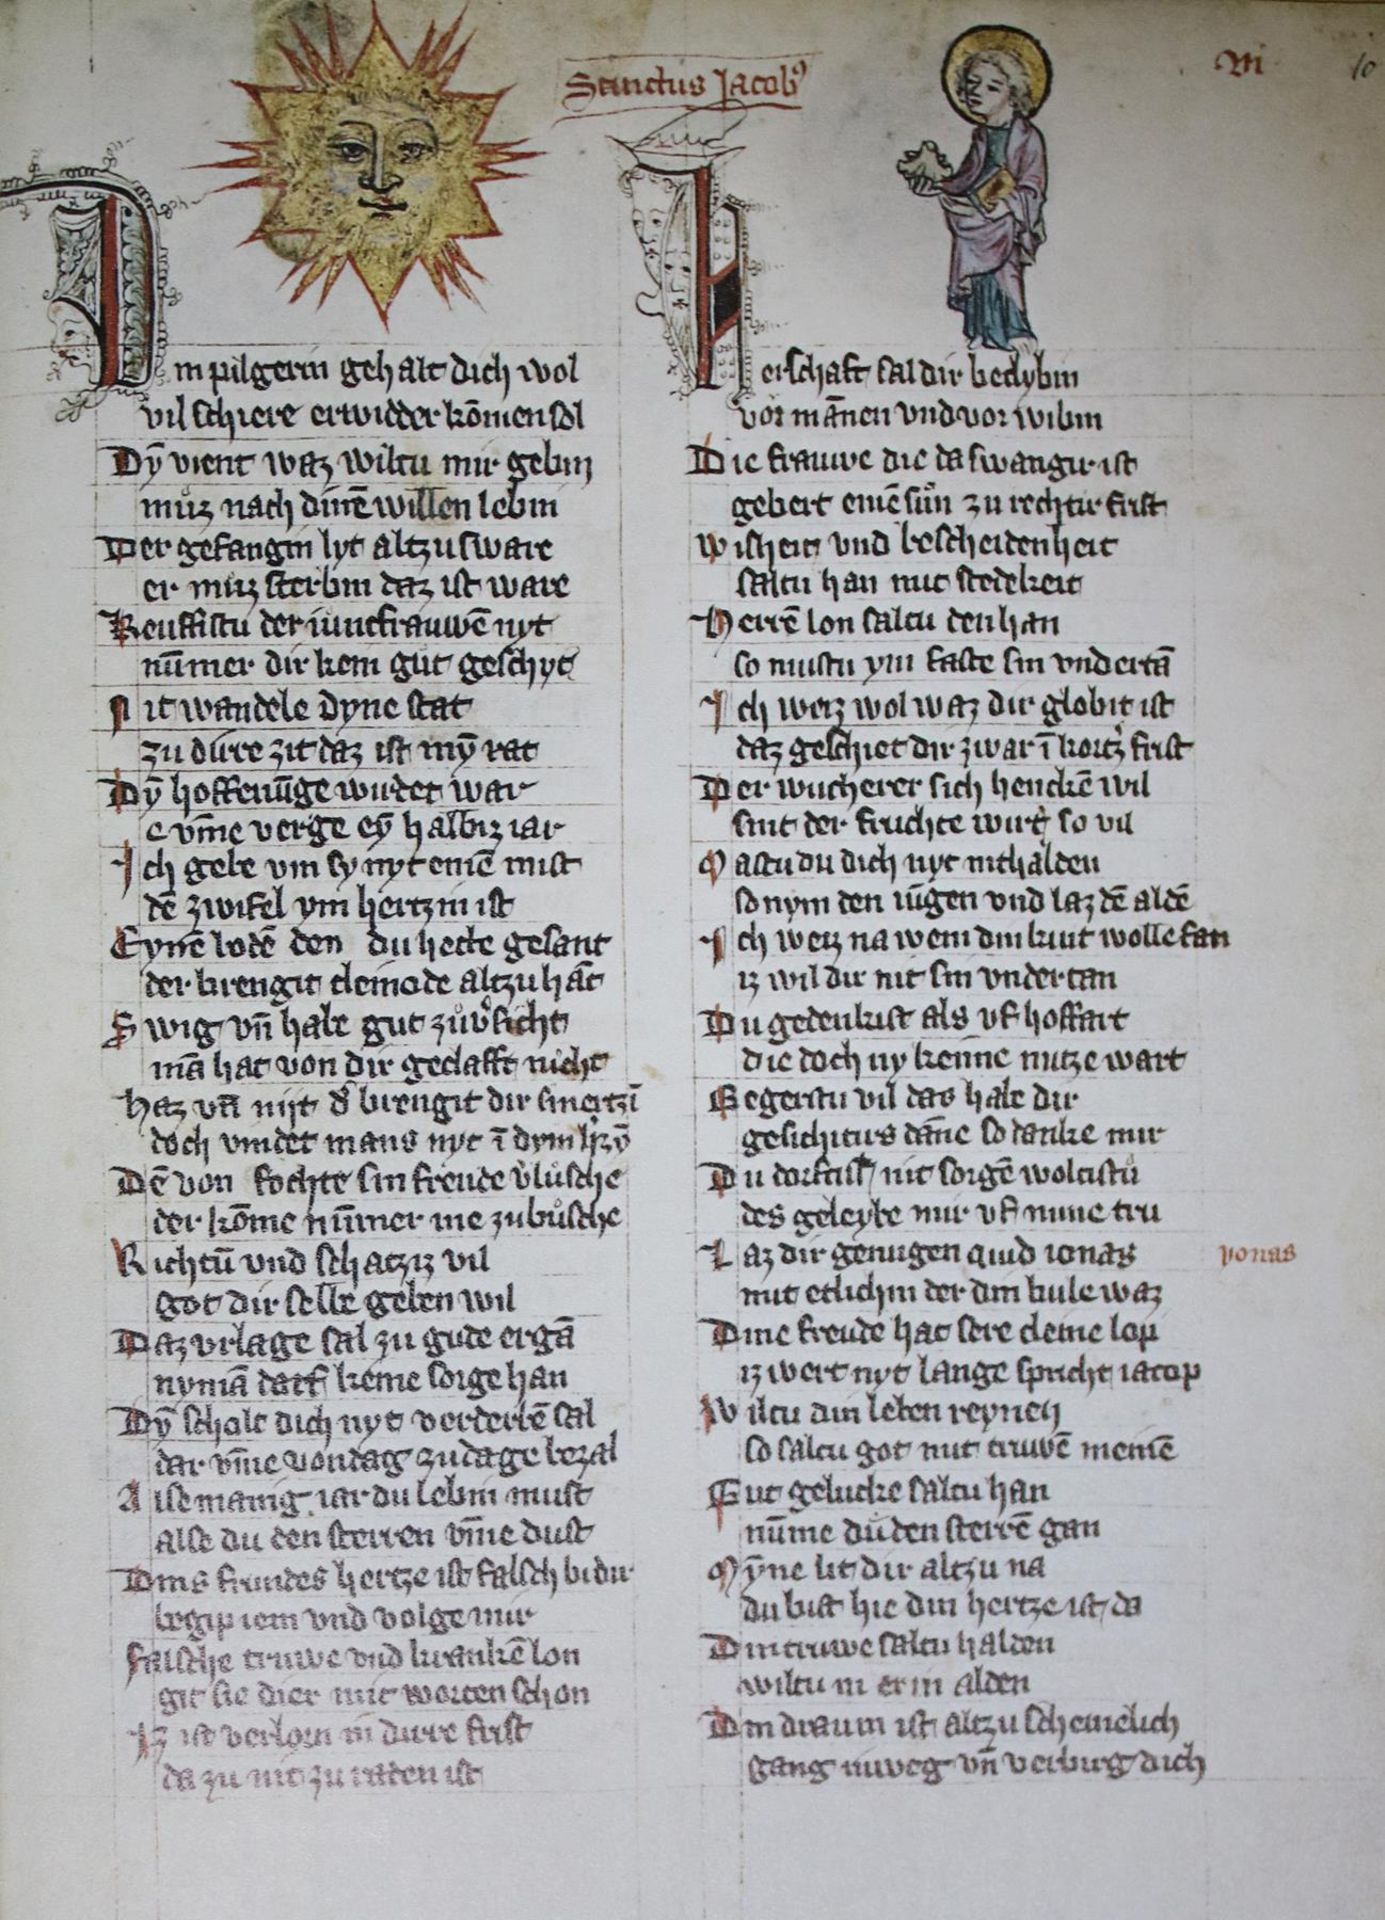 Sanctus Jacobꝰ
VII 10
Din pilgerin gehalt dich wol
vil schiere er widder kōmen sol
Dȳ vient waz wiltu mir gebin
muͦz nach dinē willen lebin
Der gefangin lyt altzu sware
er muz sterbin daz ist ware
Keuffistu der iuncfrauwē nyt
nūmer dir kein guͦt geschyt
Nit wandele dyne stat
zu dirre zit daz ist mȳ rat
Dȳ hoffenūge wirdet war
e vm̄e verge eȳ halbiz iar
Ich gebe vm sy nyt einē mist
dē zwifel ym hertzin ist
Eynē bodē den du hette gesant
der brengit cleinode altzu hāt
Swig vn̄ habe gut zuͦvͦsicht
mā hat von dir geclafft nicht
Haz vn̄ nijt dͦ brengit dir smertzī
doch vindet mans nyt ī dym hͦzȳ
Dē von fochte sin freude vͦluͦsche
der kōme nūmer me zu buͦsche
Richtū vnd schatziz vil
got dir selle geben wil
Daz vrlage sal zu gude ergā
nymā darf keine sorge han
Dȳ scholt dich nyt verderbē sal
dar vm̄e von dag zu dage bezal
Alse manig iar du lebin must
alse du den sterren vm̄e dust
Dins frundes hertze ist falsch bi dir
begip iem vnd volge mir
falsche truwe vnd krankē lon
git sie dier mit worten schon
Iz ist verlorn in dirre frist
da zu nit zu raden ist
Herschaft sal dir bedybin
vor mānen vnd vor wibin
Die frauwe die da swangir ist
gebert einē suͦn zu rechtir frist
Wisheit vnd bescheidenheit
saltu han mit stedekeit
Herrē lon saltu den han
so mustu ym faste sin vndertā
Ich weiz wol waz dir globit ist
daz geschiet dir zwar ī kortzͦ frist
Der wucherer sich henckē wil
sint der fruchte wirt so vil
Mastu du dich nyt inthalden
so nym den iūgen vnd laz dē aldē
Ich weiz na wem din kint wolle fan
iz wil dir nit sin vndertan
Du gedenkist als vf hoffart
die doch ny keinne nutze wart
Begerstu vil das hale dir
geschicht's dāne so danke mir
Du dorftist nit sorgē woltistuͦ
des geleybe mir vf mine tru
Laz dir genugen quid ionas
yonas
mit etlichin der din bule waz
Dine freude hat sere cleine lop
iz wert nyt lange spricht iacop
Wiltu din leben reynen
so saltu got mit truwē meinē
Gut gelucke saltu han
nūme duͦ den sterrē gan
Mȳne lit dir altzu na
du bist hie din hertze ist da
Din truwe saltu halden
wiltu in ern alden
Din draum ist altzu schemelich
gang inweg vn̄ verbirg dich